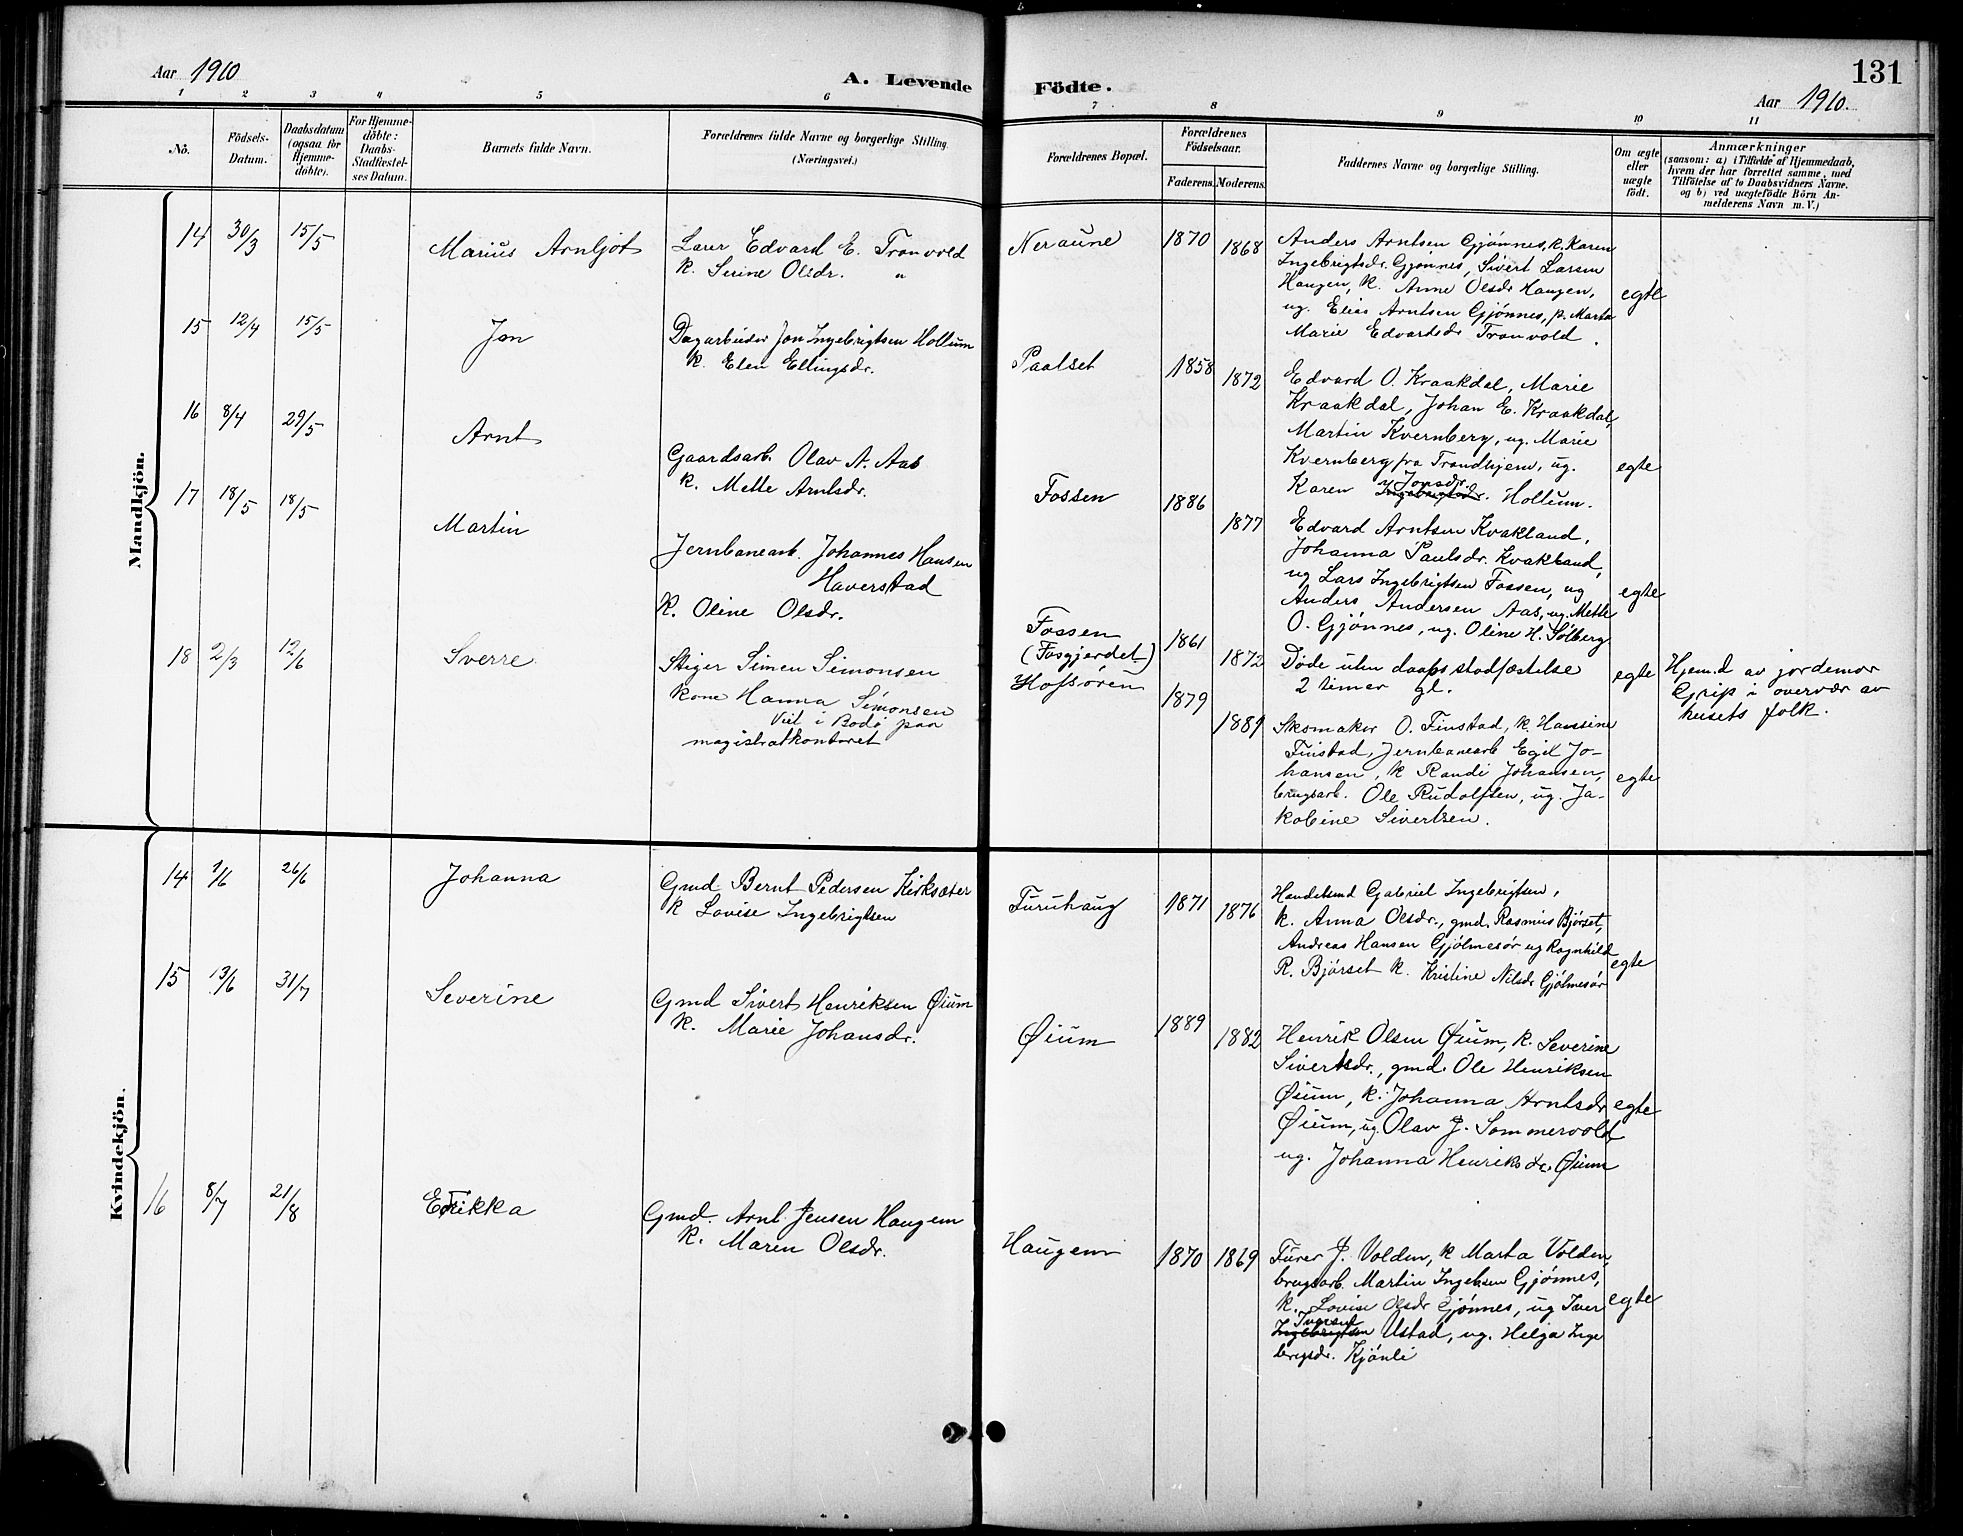 Aar 1910
A. Levende
Födte.
131
Aar 1910.
1 2 3 4 5 6 7 8 9 10 11
No.
Födsels-
Datum.
Daabsdatum
(ogsaa for
Hjemme-
döbte).
For Hjemme-
döbte:
Daabs-
Stadfæstel-
ses Datum.
Barnets fulde Navn.
Forældrenes fulde Navne og borgerlige Stilling.
(Næringsvei.)
Forældrenes Bopæl.
Forældrenes
Födselsaar.
Faderens. Moderens.
Faddernes Navne og borgerlige Stilling.
Om ægte
eller
uægte
födt.
Anmærkninger
(saasom: a) i Tilfælde af Hjemmedaab,
hvem der har forrettet samme, med
Tilföielse af to Daabsvidners Navne,
og b) ved uægtefödte Börn An-
melderens Navn m. V.)
Mandkjön.
14 30/3 15/5 Marius Arnljot
Edvard E. Tronvold
k. Serine Olsdr. "
Neraune 1870 1868
Anders Arntsen Gjönnes, k. Karen
Ingebrigtsdr. Gjönnes, Sivert Larsen
Haugen, k. Anne Olsdr Haugen,
ug. Elias Arntsen Gjönnes, p. Marta
Marie Edvardsdr Tronvold.
egte
15 12/4 15/5 Jon
Dagarbeider Jon Ingebrigtsen Hollum
k. Elen Ellingsdr.
Paalset 1858 1872
Edvard O. Kraakdal, Marie
Kraakdal, Johan E. Kraakdal,
Martin Kvernberg, ug. Marie
Kvernberg fra Trondhjem, ug.
Karen Jonsdr. Hollum.
egte
16 8/4 29/5 Arnt
Gaardsarb. Olav A. Aas
k. Mette Arntsdr.
Fossen 1886 1877
Edvard Arntsen Kvakland,
Johanna Paulsdr. Kvakland,
ug Lars Ingebrigtsen Fossen, ug
Anders Andersen Aas, ug. Mette
O. Gjönnes, ug. Oline H. Sölberg
egte
17 18/5 18/5 Martin
Jernbanearb. Johannes Hansen
Haverstad
k. Oline Olsdr.
Fossen
(Fosgjerdet) 1861 1872
Döde uten daabsstadfæstelse
2 timer gl.
egte
Hjem.d av jordemor
Grip i overvær av
husets folk.
18 2/3 12/6 Sverre
Stiger Simen Simonsen
kone Hanna Simonsen
Viet i Bodö paa
magistratkontoret
Hofsören 1879 1889
Skomaker O. Finstad, k. Hansine
Finstad, Jernbanearb Egil Jo-
hansen, k Randi Johansen,
brugsarb. Ole Rudolfsen, ug. Ja-
kobine Sivertsen.
egte
Kvindekjön.
14 1/6 26/6 Johanna
Gmd Bernt Pedersen Kirksæter
k Lovise Ingebrigtsen
Furuhaug 1871 1876
Handelsmd Gabriel Ingebrigtsen,
k. Anna Olsdr., gmd. Rasmus Bjørset,
Andreas Hansen Gjölmesör ug Ragnhild
R. Bjørset k. Kristine Nilsdr Gjölmesör
egte
15 13/6 31/7 Severine
Gmd Sivert Henriksen Øium
k. Marie Johansdr.
Øium 1889 1882
Henrik Olsen Øium, k. Severine
Sivertsdr., gmd. Ole Henriksen
Øium, k. Johanna Arntsdr
Øium, ug. Olav J. Sommervold
ug. Johanna Henriksdr. Øium
egte
16 8/7 21/8 Erikka
Gmd. Arnt Jensen Haugen
k. Maren Olsdr.
Haugen 1870 1869
J. Volden, k Marta Volden,
brugsarb. Martin Ingebsen Gjönnes,
k. Lovise Olsdr Gjönnes, ug Iver
Iversen
Ingebrigtsen Ustad, ug. Helga Inge
brigsdr. Kjönli
egte